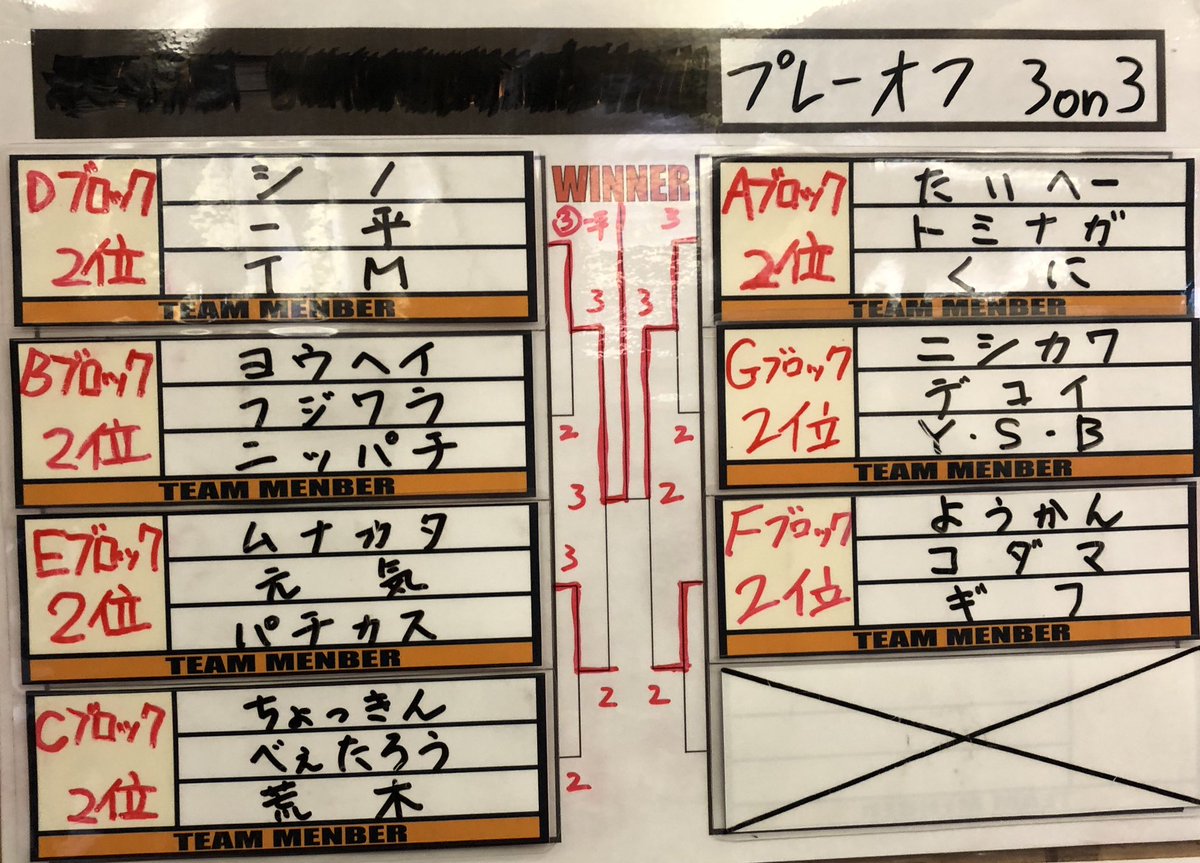 プレーオフ 3on3
WINNER
Dブロック
2位
シノ
一平
TM
TEAM MENBER
Bブロック
2位
ヨウヘイ
フジワラ
ニッパチ
TEAM MENBER
Eブロック
2位
ムナカタ
元気
パチカス
TEAM MENBER
Cブロック
2位
ちょっきん
べぇたろう
荒木
TEAM MENBER
③一平
3
3
3
2
2
3
2
3
2
2
2
Aブロック
2位
たいへー
トミナガ
くに
TEAM MENBER
Gブロック
2位
ニシカワ
デコイ
Y・S・B
TEAM MENBER
Fブロック
2位
ようかん
コダマ
ギフ
TEAM MENBER